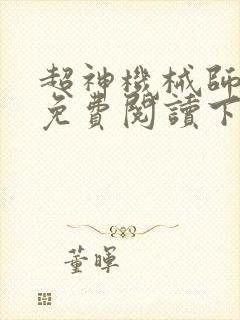 超神機械師
免費閱讀下
董暉